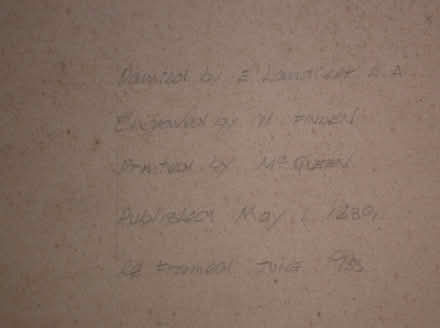 Painted by E Landseer R.A.
Engraved by W. FINDEN
Printed by Mc QUEEN
Published May 1 1839,
Re Framed June